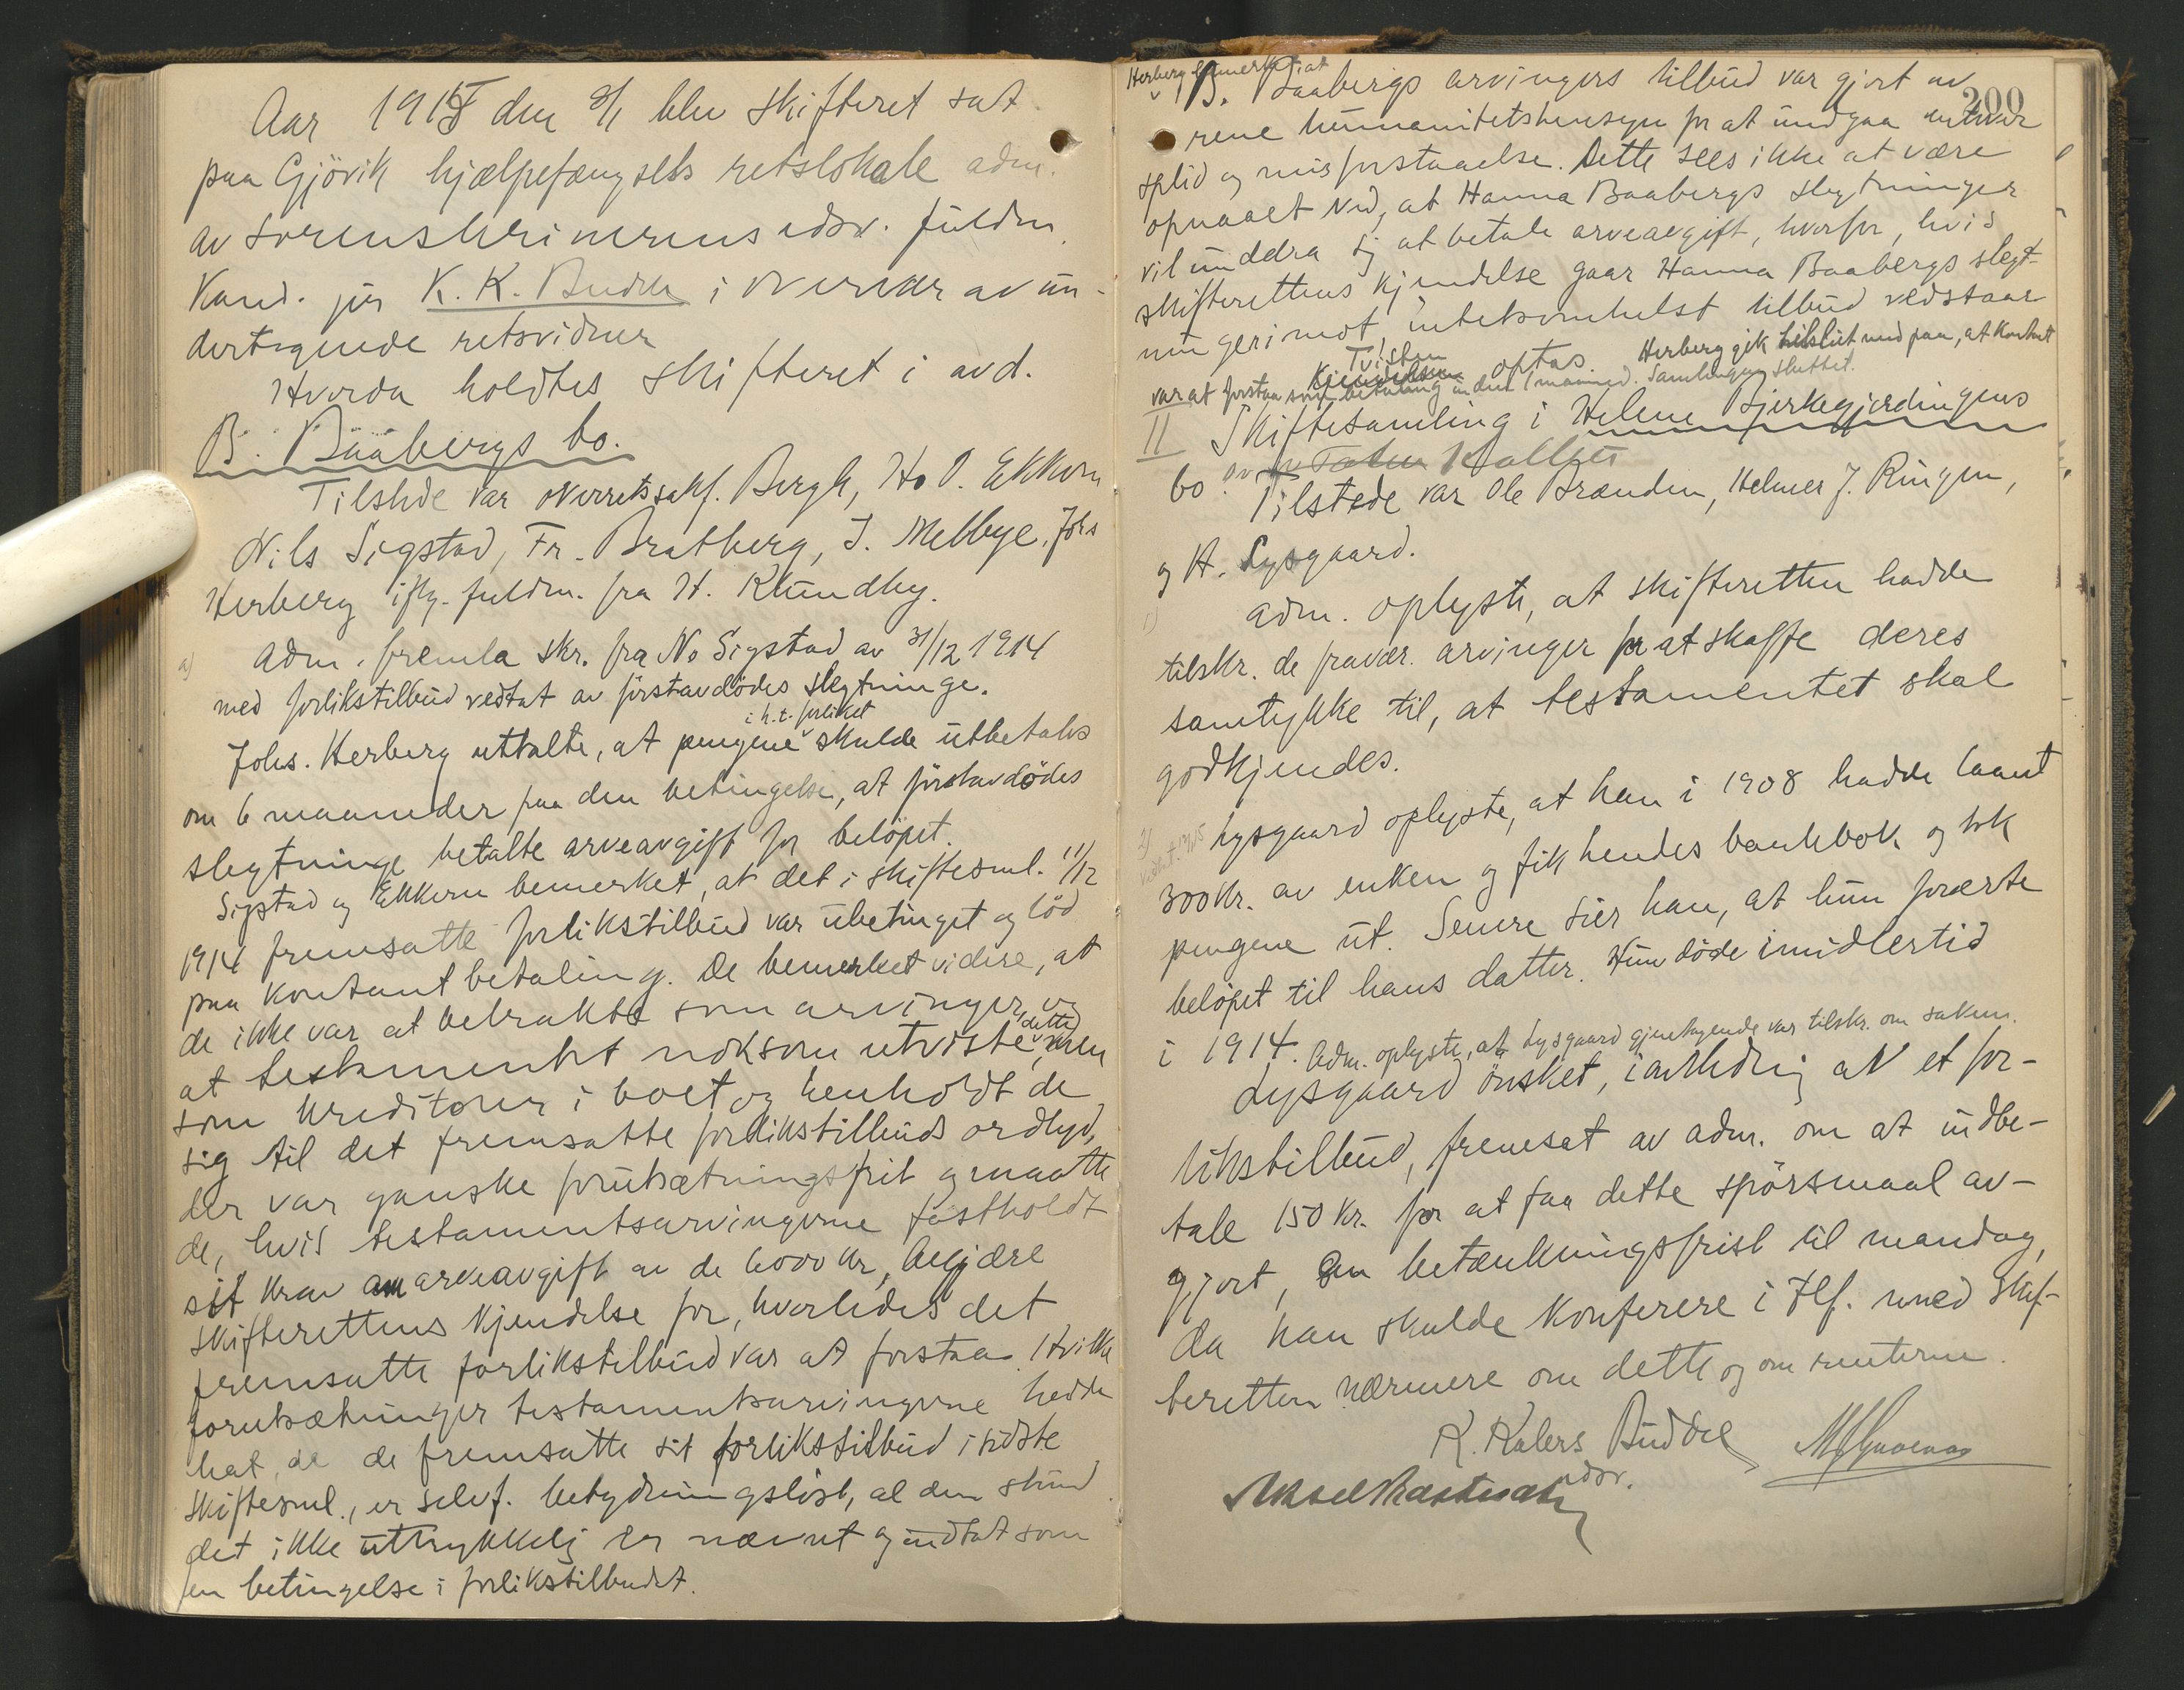 Aar 1915 den 8/1 blev skifteret sat
paa Gjövik hjælpefængsels retslokale adm.
av sorenskriverens edsv. fuldm.
Kand. jur K. K. Budde i overvær av un-
dertegnede retsvidner
Hvorda holdtes skifteret i avd.
B. Baabergs bo.
Tilstede var overretssakf. Bergh, H. O. Ekkern
Nils Sigstad, Fr. Bratberg, J. Melbye, Johs
Herberg iflg. fuldm. fra H. Klundby.
a) Adm. fremla skr. fra N. Sigstad av 31/12 1914
med forlikstilbud vedtat av förstavdödes slegtninge.
i h. t. forliket
Johs. Herberg uttalte, at pengene skulde utbetales
om 6 maaneder paa den betingelse, at förstavdödes
slegtninge betalte arveavgift for belöpet.
Sigstad og Ekkern bemerket, at det i skiftesml. 11/12
1914 fremsatte forlikstilbud var ubetinget og löd
paa kontant betaling. De bemerket videre, at
de ikke var at betrakte som arvinger, og
at testamentet noksom utviste dette, men
som kreditorer i boet og henholdt de
sig til det fremsatte forlikstilbuds ordlyd,
der var ganske forutsætningsfrit og maatte
de, hvis testamentsarvingerne fastholdt
sit krav om arveavgift av de 6000 kr, begjære
skifterettens kjendelse for, hvorledes det
fremsatte forlikstilbud var at forstaa. Hvilke
forutsætninger testamentsarvingerne hadde
hat, da de fremsatte sit forlikstilbud i sidste
skiftesml., er selvf. betydningslöst, al den stund
det ikke uttrykkelig er nævnt og indtat som
en betingelse i forlikstilbudet.
200
Herberg bemerket, at
B. Baabergs arvingers tilbud var gjort av
rene humanitetshensyn for at undgaa enhver
splid og misforstaaelse. Dette sees ikke at være
opnaaet ved, at Hanna Baabergs slegtninger
vil unddra sig at betale arveavgift, hvorfor, hvis
skifterettens kjendelse gaar Hanna Baabergs slegt-
ninger imot, intetsomhelst tilbud vedstaaes
Tvisten
Kjendelsen optas. Herberg gik tilslut med paa, at kontant
var at forstaa som betaling inden 1 maaned. Samlingen sluttet.
II Skiftesamling i Helene Bjerkegjerdingens
bo av
Tilstede var Ole Brænden, Helmer J. Ringen,
og H. Lysgaard.
1) Adm. oplyste, at skifteretten hadde
tilskr. de fravær. arvinger for at skaffe deres
samtykke til, at testamentet skal
godkjendes.
2) Lysgaard oplyste, at han i 1908 hadde laant
300 kr. av enken og fik hendes bankbok og tok
pengene ut. Senere sier han, at hun forærte
belöpet til hans datter. Hun döde imidlertid
i 1914. Adm. oplyste, at Lysgaard gjentagende var tilskr. om saken.
Lysgaard önsket, i anledning av et for-
likstilbud, fremsat av adm. om at indbe-
tale 150 kr. for at faa dette spörsmaal av-
gjort, en betænkningsfrist til mandag,
da han skulde konferere i tlf. med skif-
teretten nærmere om dette og om renterne.
K. Kolers Budde
edsv.